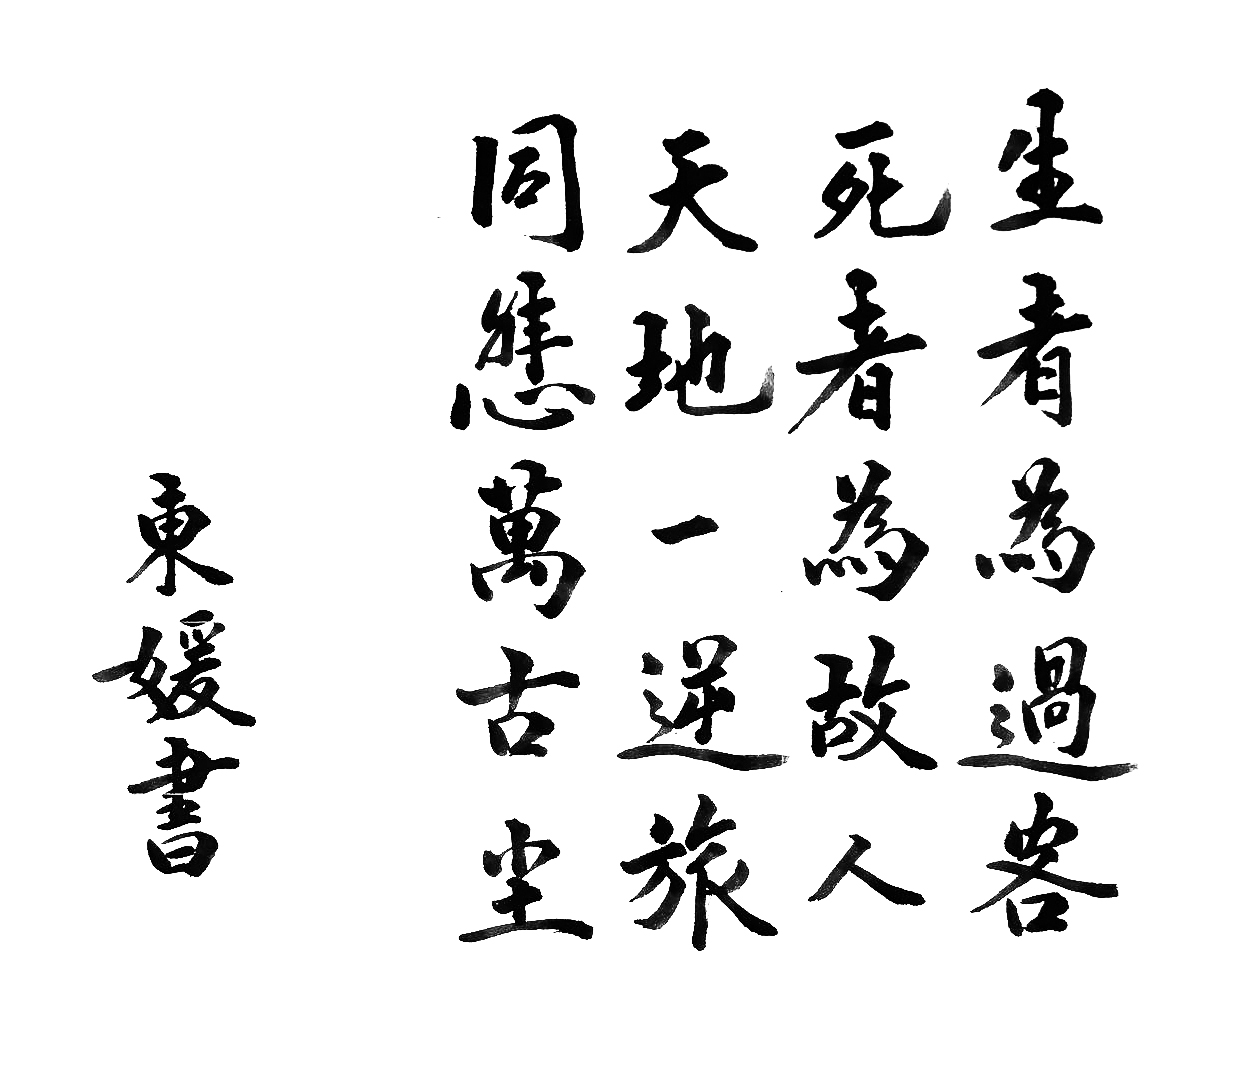 生者為過客
死者為故人
天地一逆旅
同悲萬古尘
東媛書